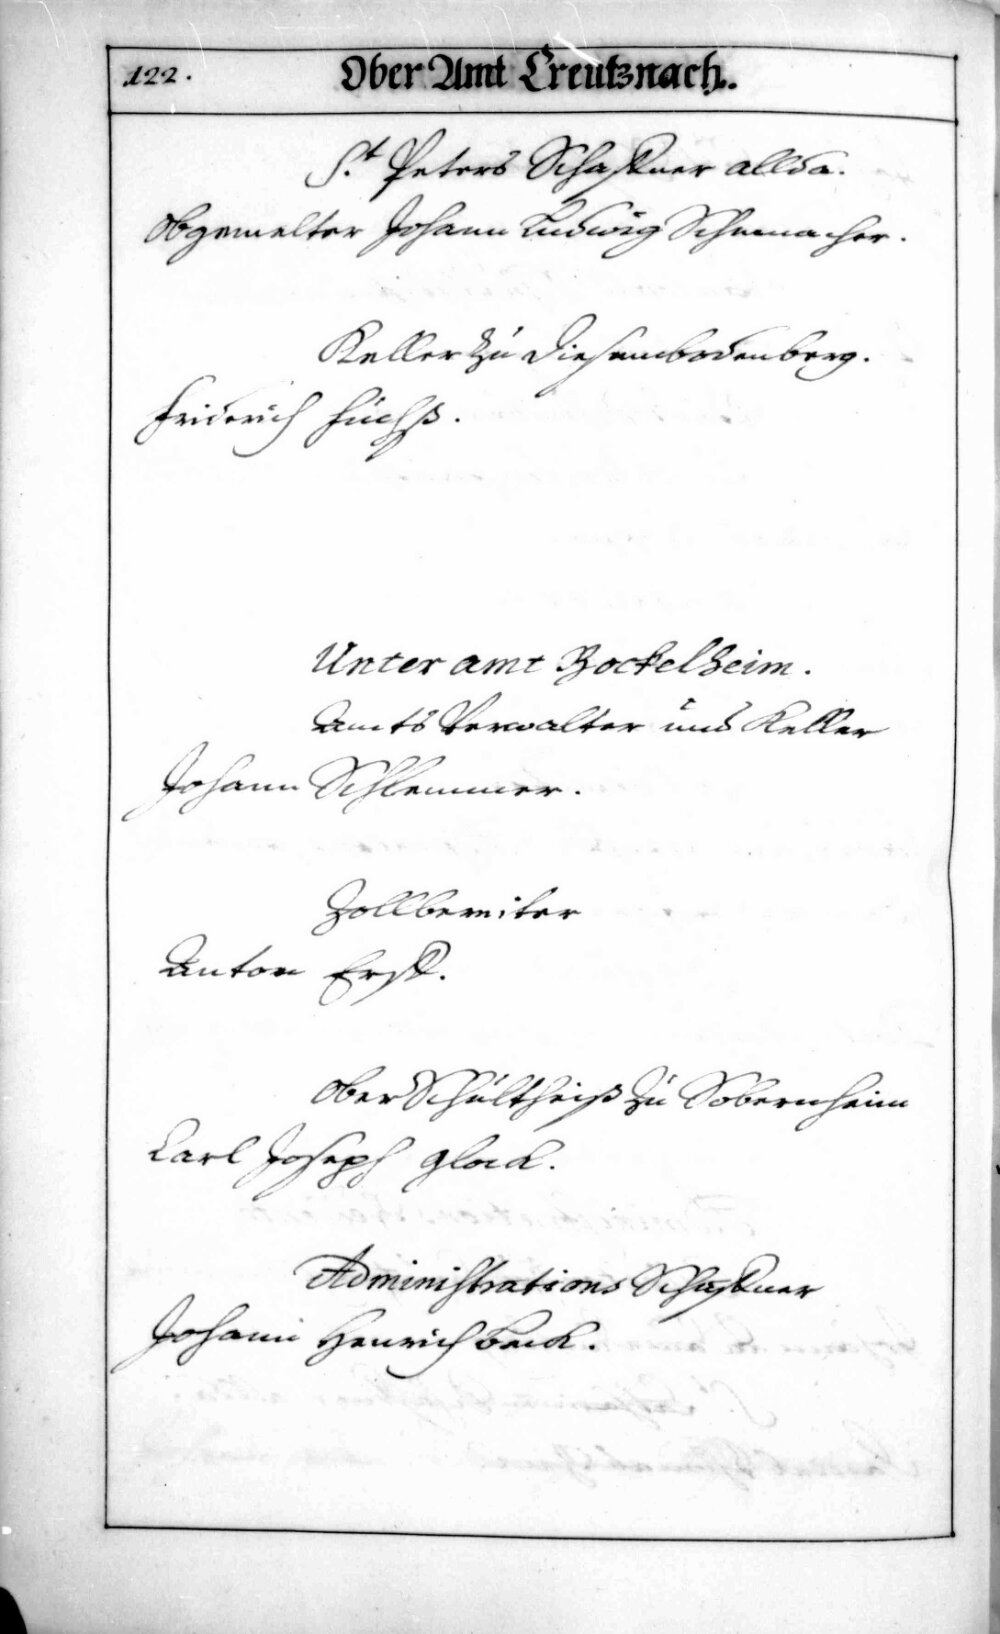 122.
Ober Amt Creutznach.
St. Peters Schaffner allda.
Obgemelter Johann Ludwig Schumacher.
Keller zu Diesembodenberg.
Friderich Füchß.
Unter amt Bockelheim.
Amts Verwalter und Keller
Johann Schlemmer.
Zollbereiter
Anton Erst.
Ober Schultheiß zu Sobernheim
Carl Joseph Glock.
Administrations Schaffner
Johann Henrich Beck.